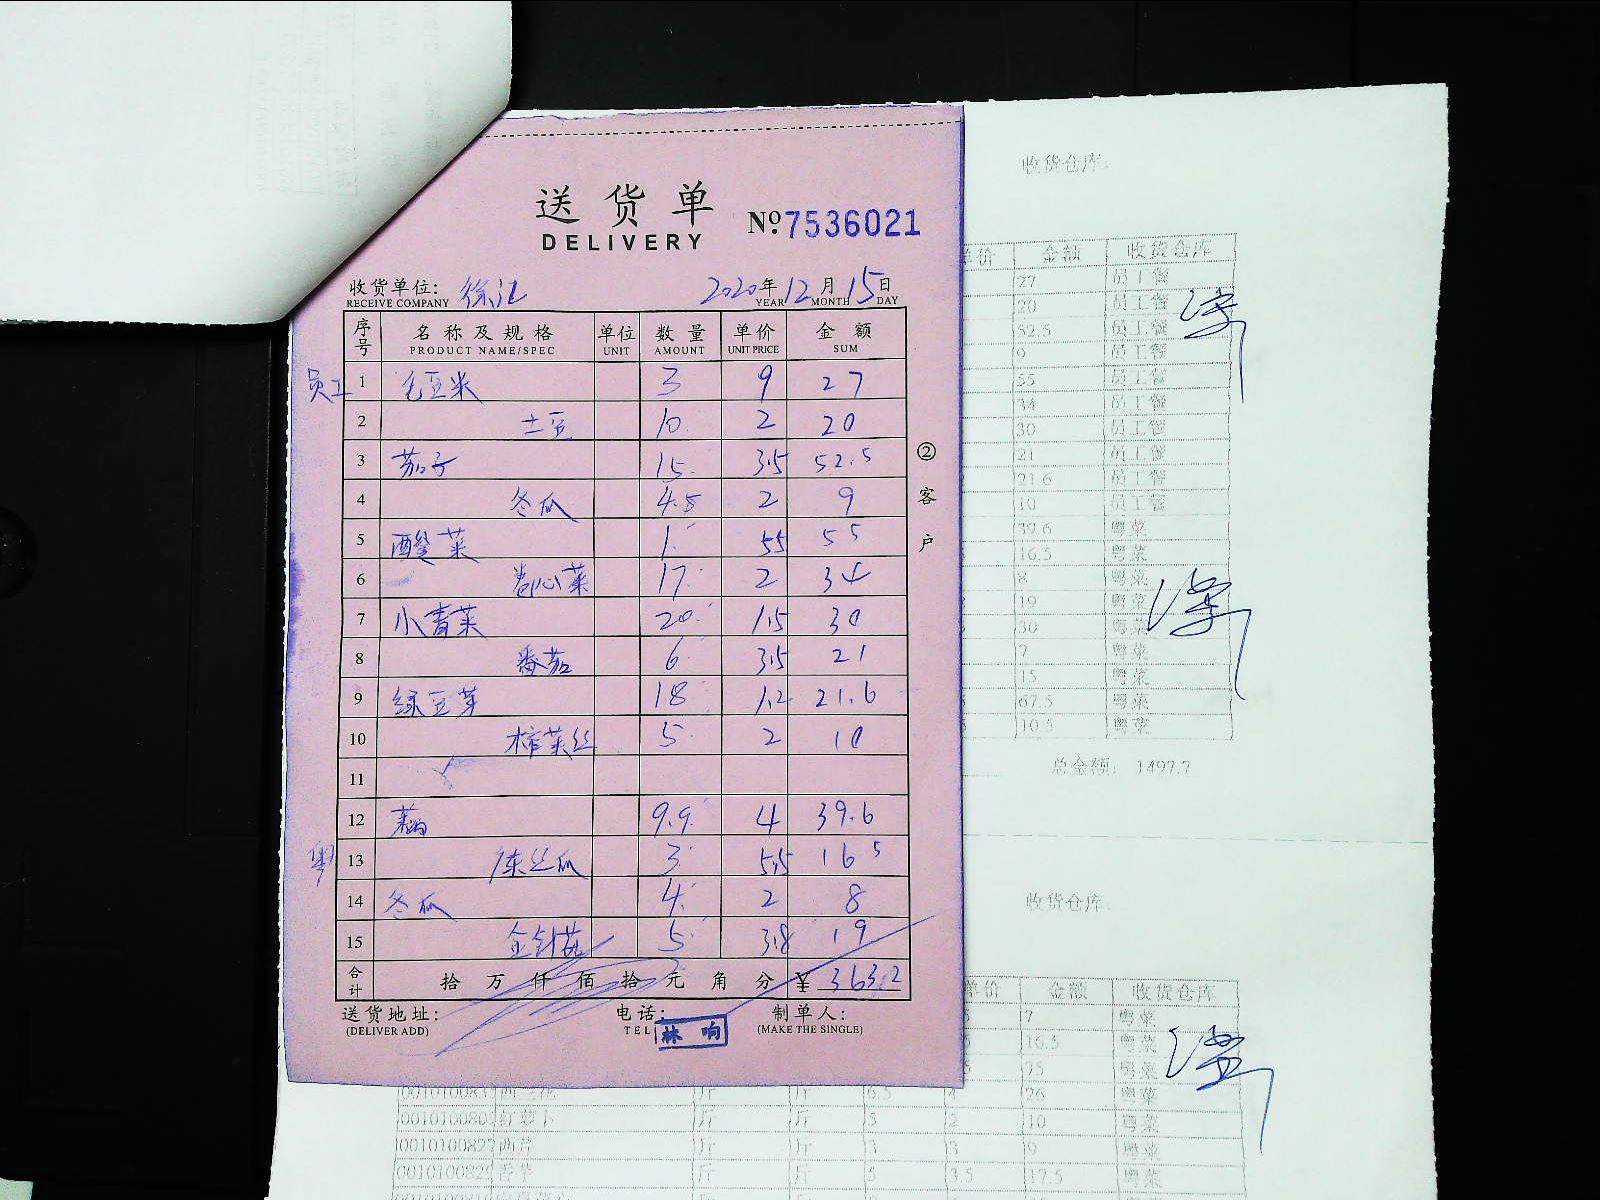 送货单
DELIVERY
Nº:7536021
收货单位: 徐汇 2020年12月15日
RECEIVE COMPANY YEAR MONTH DAY
序号 名称及规格 单位 数量 单价 金额
PRODUCT NAME/SPEC UNIT AMOUNT UNIT PRICE SUM
员工 1 毛豆米 3 9 27
2 土豆 10 2 20
3 茄子 15 3.5 52.5
4 冬瓜 4.5 2 9
5 菜 1 55 55
6 卷心菜 17 2 34
7 小青菜 20 1.5 30
8 番茄 6 3.5 21
9 绿豆芽 18 1.2 21.6
10 榨菜丝 5 2 10
11
12 9.9 4 39.6
粤 13 丝瓜 3 5.5 16.5
14 冬瓜 4 2 8
15 金针菇 5 3.8 19
合计 拾万仟佰拾元角分 ¥363.2
送货地址: 电话: 制单人:
(DELIVER ADD) TEL (MAKE THE SINGLE)
林响
②客户
收货仓库:
单价 金额 收货仓库
27 员工餐
20 员工餐
52.5 员工餐
9 员工餐
55 员工餐
34 员工餐
30 员工餐
21 员工餐
21.6 员工餐
10 员工餐
39.6 粤菜
16.5 粤菜
8 粤菜
19 粤菜
30 粤菜
7 粤菜
15 粤菜
67.5 粤菜
10.5 粤菜
总金额: 1497.7
收货仓库:
单价 金额 收货仓库
7 粤菜
16.5 粤菜
75 粤菜
西兰花 斤 斤 6.5 4 26 粤菜
红萝卜 斤 斤 5 2 10 粤菜
西芹 斤 斤 3 3 9 粤菜
香芋 斤 斤 5 3.5 17.5 粤菜